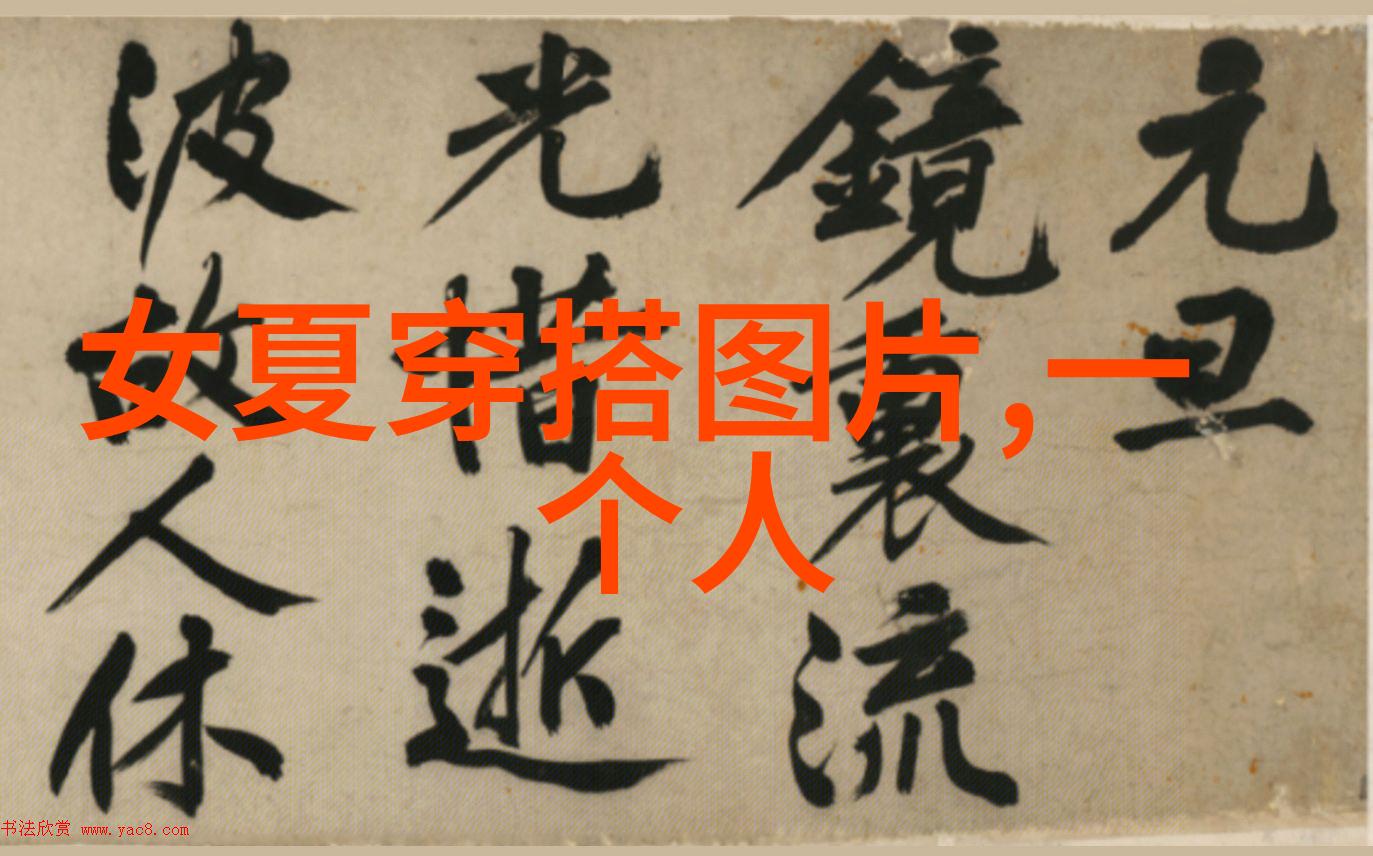 元旦
鏡裏流
光惜逝
波故人休
女夏穿搭图片,一
个人
书法欣赏 www.yac8.com